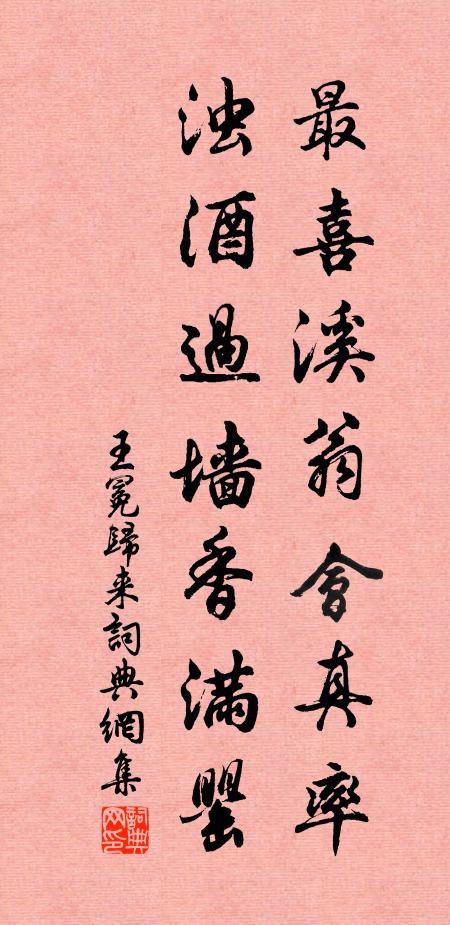 最喜溪翁會真率
浊酒過墙香满罌
王冕歸来詞典網集
詞典网印